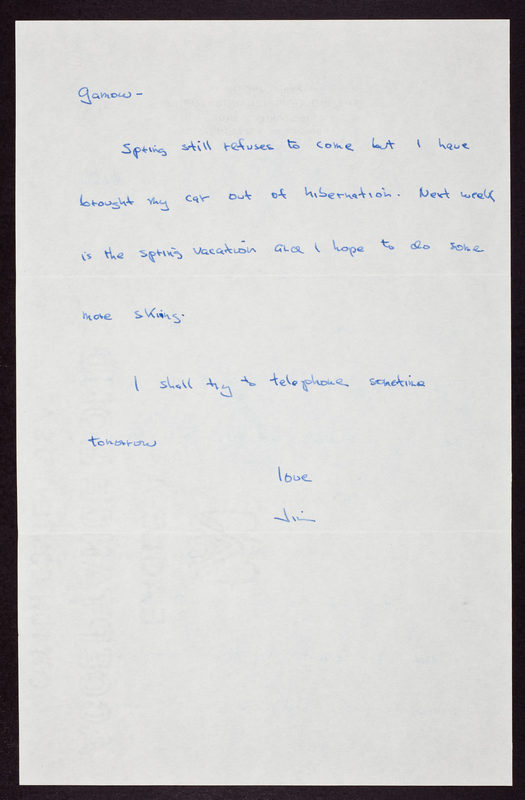 Gamow -
Spring still refuses to come but I have
brought my car out of hibernation. Next week
is the spring vacation and I hope to do some
more skiing.
I shall try to telephone sometime
tomorrow
love
Jim